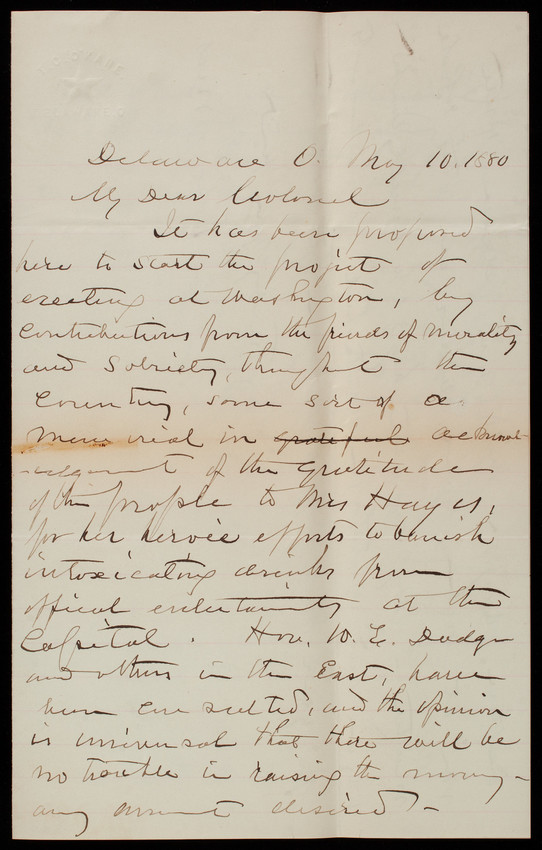 Delaware O. May 10. 1880
My Dear Colonel
It has been proposed
here to start the project of
erecting at Washington, by
contributions from the friends of morality
and sobriety, throught the
Country, some sort of a
memorial in grateful acknowl-
-edgment of the gratitude
of the people to Mrs Hayes,
for her heroic efforts to banish
intoxicating drinks from
offical entertaints at the
Capital. Hon. W. E. Dodge
and others in the East, have
been consulted, and the opinion
is universal that there will be
no trouble in raising the money -
any amount desired -